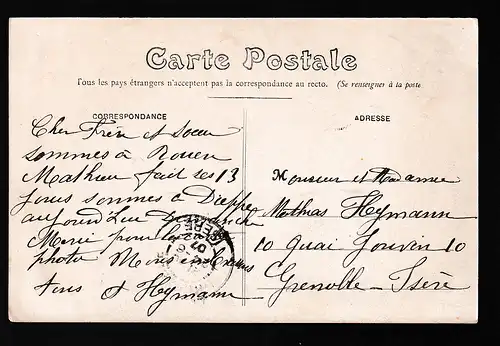 Carte Postale
Tous les pays étrangers n'acceptent pas la correspondance au recto. (Se renseigner à la poste
CORRESPONDANCE
Cher Frère et Soeur
sommes à Rouen
Mathieu fait ses 13
jours sommes à Dieppe
aujourd hui Dimanche
Merci pour la
photo
tous et Heymann
ADRESSE
Monsieur et Madame
Mathias Heymann
10 Quai Jouvin 10
Grenoble - Isère